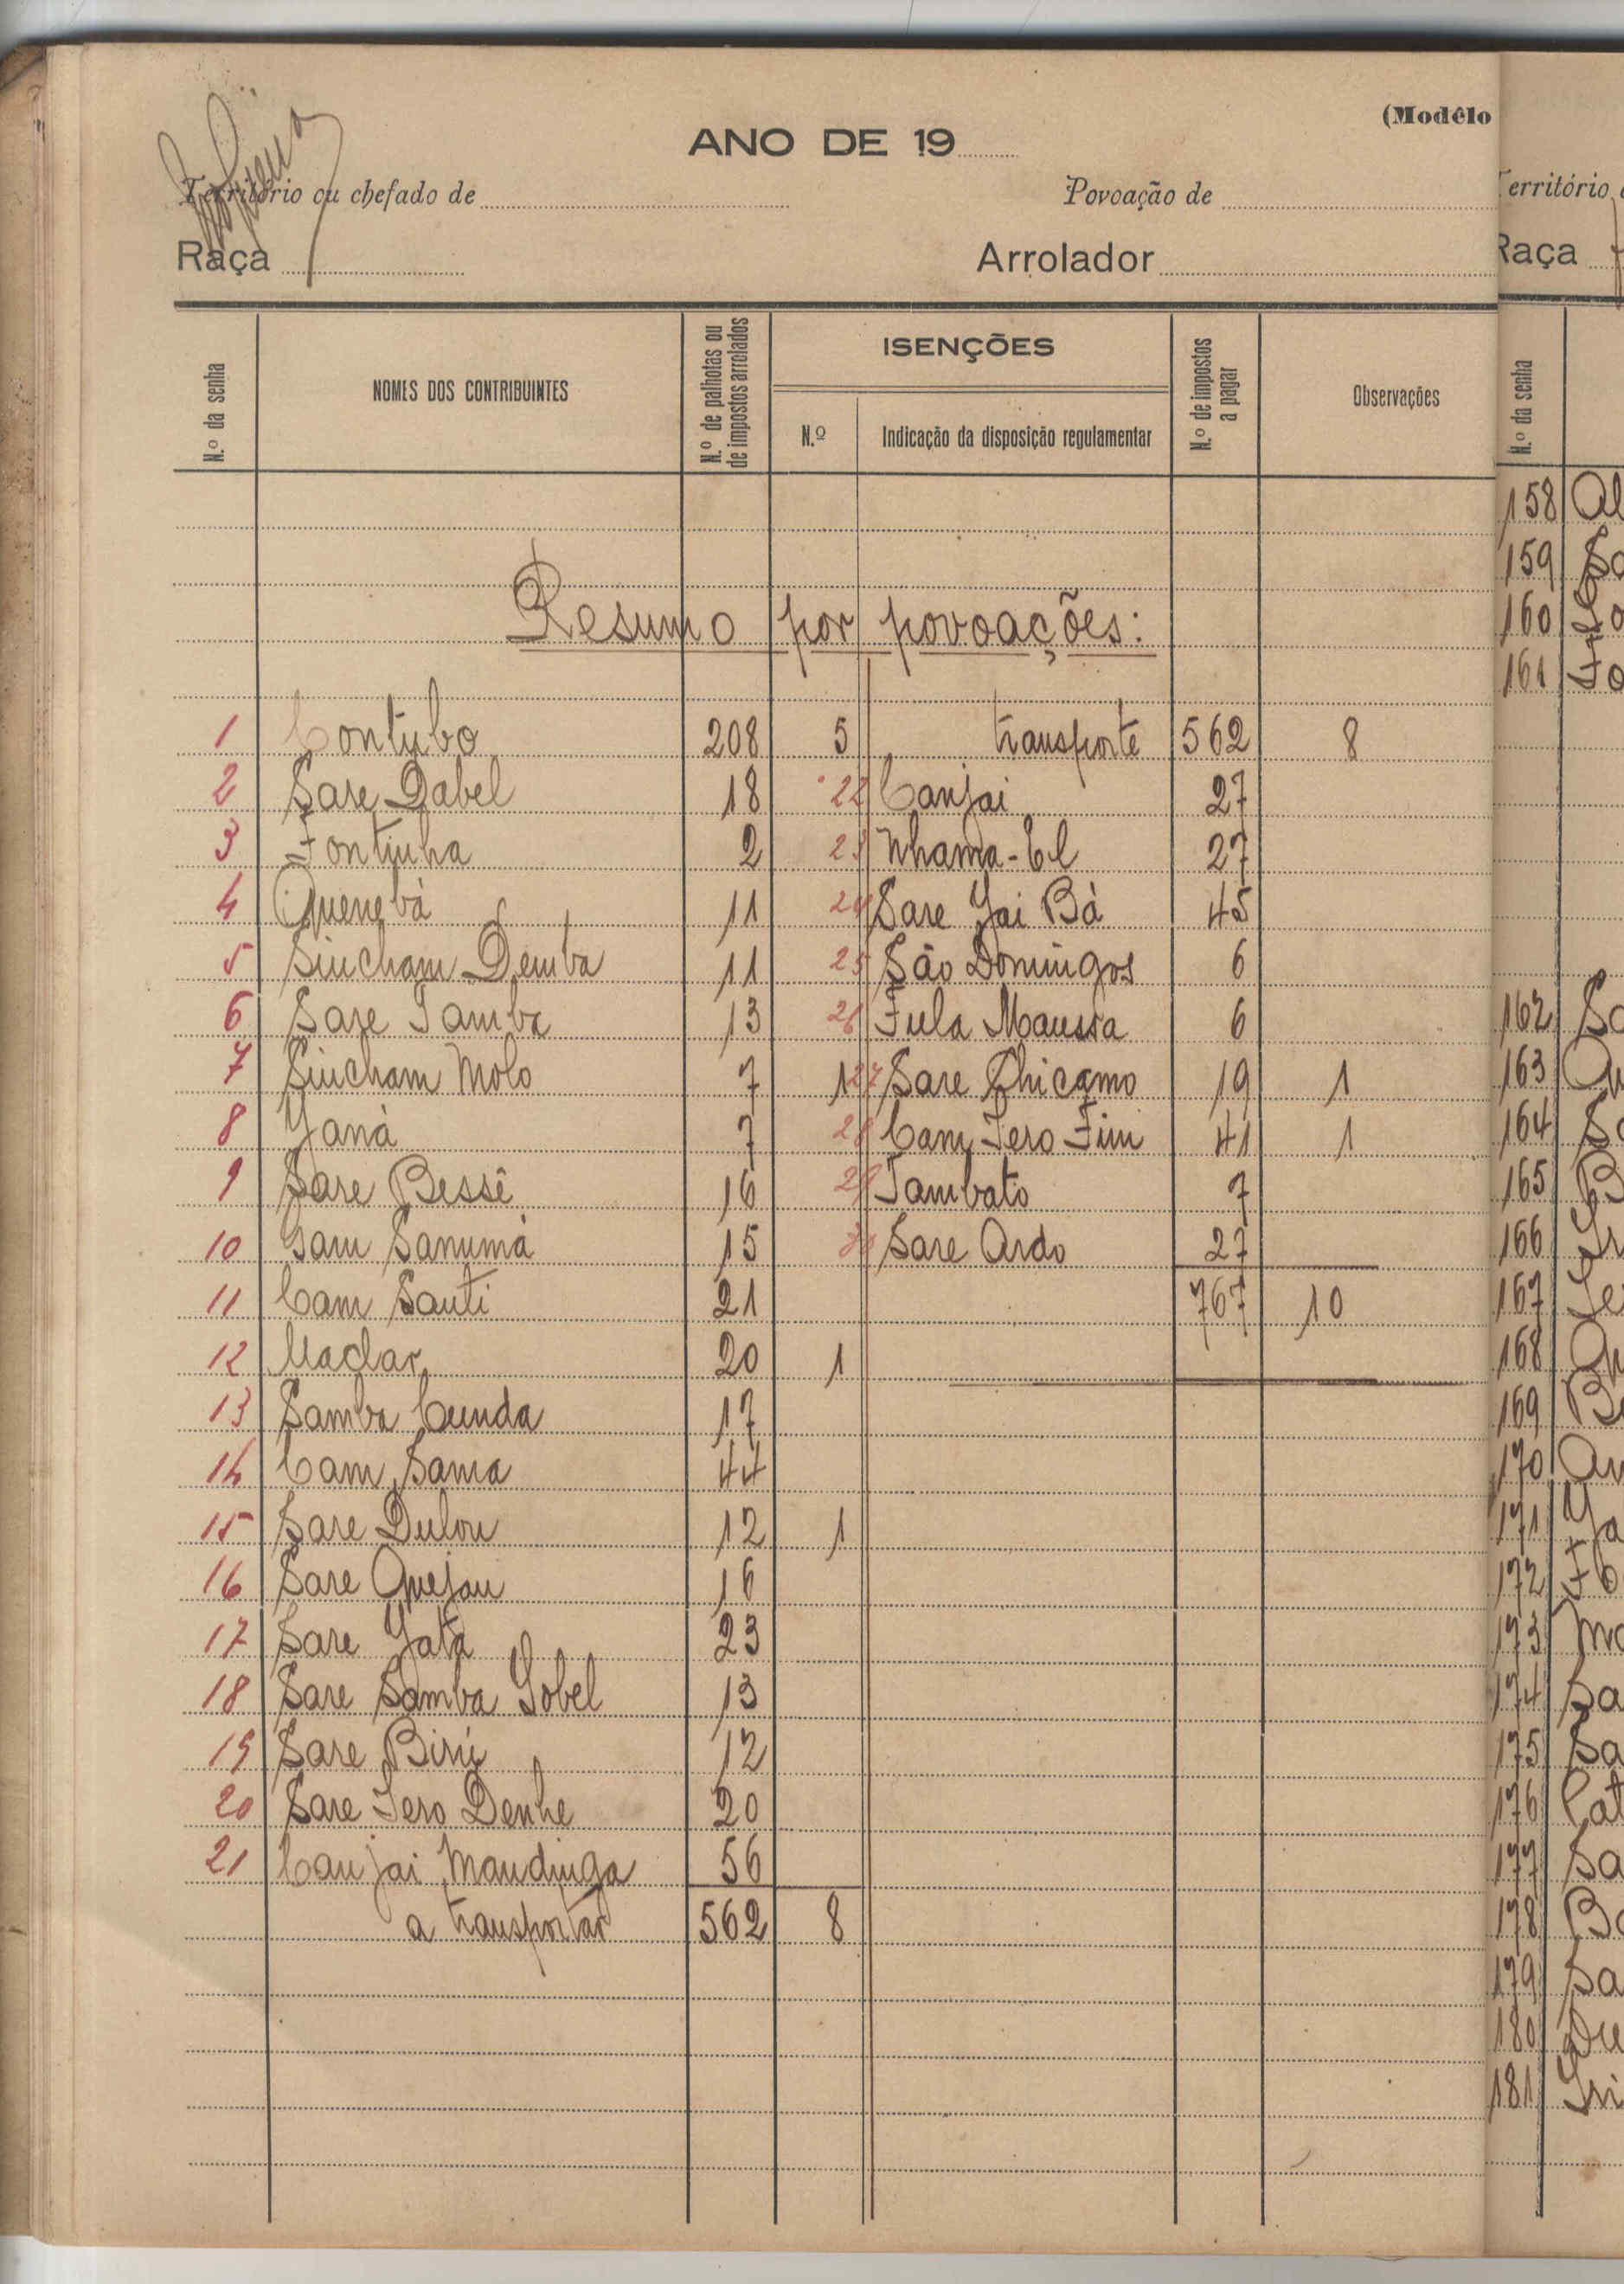 (Modêlo
ANO DE 19
Território ou chefado de
Povoação de
Raça
Arrolador
N.º da senha
NOMES DOS CONTRIBUINTES
N.º de palhotas ou de impostos arrolados
ISENÇÕES
N.º
Indicação da disposição regulamentar
N.º de impostos a pagar
Observações
Resumo por povoações:
1 Contubo 208 5 transporte 562 8
2 Sare Dabel 18 22 Canjai 27
3 Fontinha 2 23 Nhama-El 27
4 Quenebà 11 24 Sare Jai Bà 45
5 Sincham Demba 11 25 São Domingos 6
6 Sare Tamba 13 26 Fula Maussa 6
7 Sincham Molo 7 1 27 Sare Chicamo 19 1
8 Yanà 7 28 Cam Jero Fim 41 1
9 Sare Bessê 16 29 Tambato 7
10 Gam Sanumà 15 30 Sare Ardo 27
11 Cam Santi 21 767 10
12 20 1
13 Samba Cunda 17
14 Cam Sama 44
15 Sare Dulou 12 1
16 Sare Quejau 16
17 Sare Jatà 23
18 Sare Samba Gobel 13
19 Sare Birú 12
20 Sare Jero Denhe 20
21 Canjai Mandinga 56
a transportar 562 8
Território
Raça
N.º da senha
158 Al
159 Sa
160
161 Fo
162 Sa
163
164 Sa
165 B
166
167
168
169 B
170
171 Ya
172
173 Ma
174 Sa
175 Sa
176 Cat
177 Sa
178 Ba
179 Sa
180
181